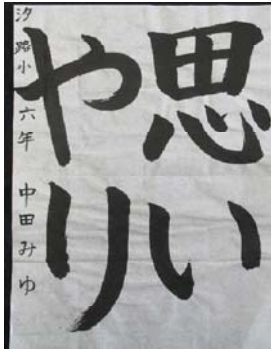 思い
やり
汐路小 六年 中田みゆ